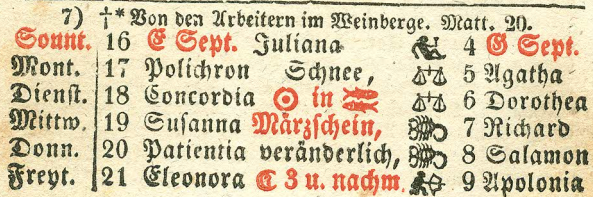 7) †* Von den Arbeitern im Weinberge. Matt. 20.
Sonnt. 16 E Sept. Juliana 4 G Sept.
Mont. 17 Polichron Schnee, ♎ 5 Agatha
Dienst. 18 Concordia ☉ in ♓ ♎ 6 Dorothea
Mittw. 19 Susanna Märzschein, ♏ 7 Richard
Donn. 20 Patientia veränderlich, ♏ 8 Salamon
Freyt. 21 Eleonora ☾ 3 u. nachm ♐ 9 Apolonia